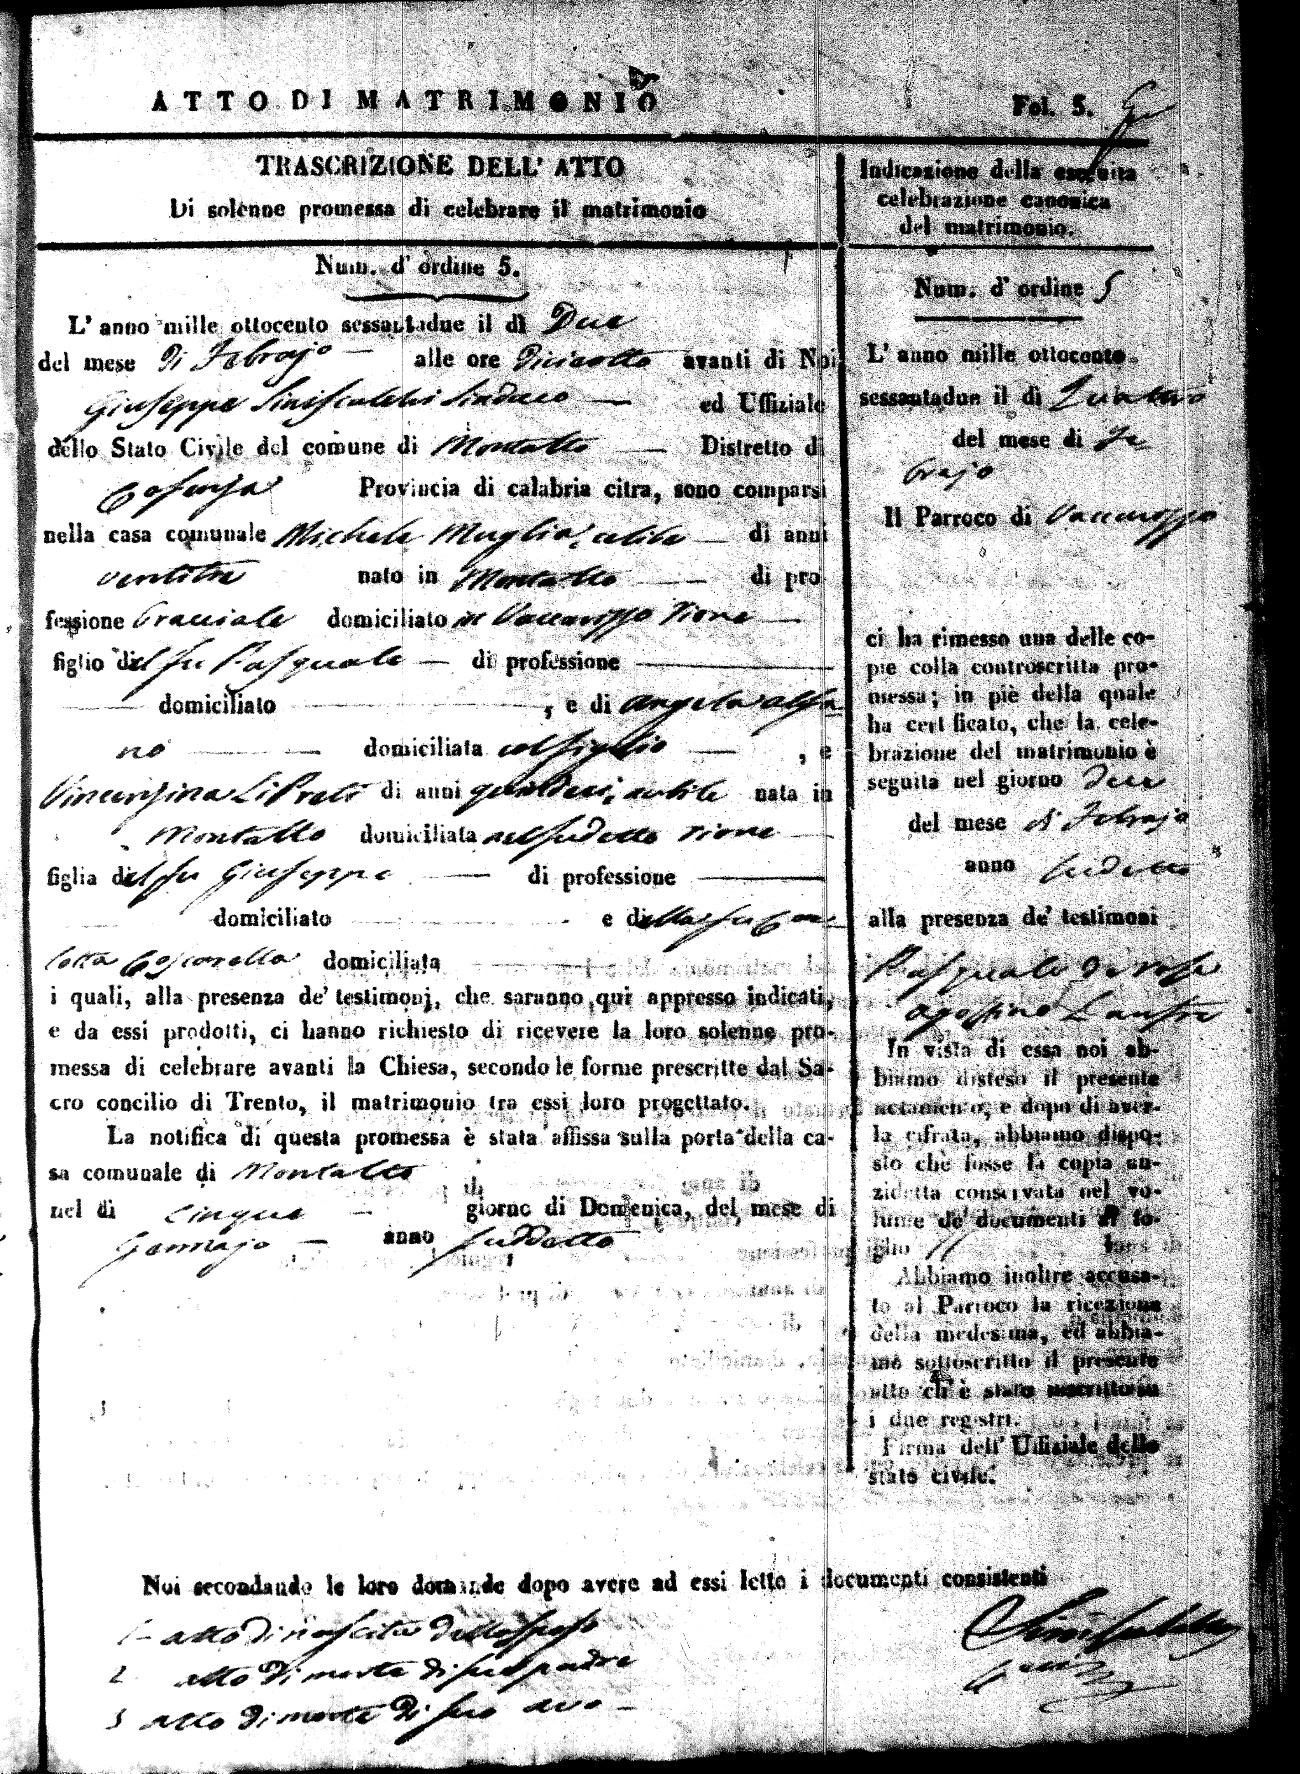 ATTO DI MATRIMONIO
Fol. 5.
TRASCRIZIONE DELL' ATTO
Di solenne promessa di celebrare il matrimonio
Num. d' ordine 5.
L' anno mille ottocento sessantadue il dì Due
del mese di Febrajo alle ore diciotto avanti di Noi
Giuseppe Siniscalchi Sindaco ed Uffiziale
dello Stato Civile del comune di Montalto Distretto di
Cosenza Provincia di calabria citra, sono comparsi
nella casa comunale Michele Muglia, celibe di anni
ventitre nato in Montalto di pro
fessione bracciale domiciliato in Vaccarizzo rione
figlio del fu Pasquale di professione
domiciliato , e di Angela Alfa
no domiciliata col figlio , e
Vincenzina Li Preti di anni quindici, nubile nata in
Montalto domiciliata nel sudetto rione
figlia del fu Giuseppe di professione
domiciliato e della fu Con
cetta Coscarella domiciliata
i quali, alla presenza de' testimonj, che saranno qui appresso indicati,
e da essi prodotti, ci hanno richiesto di ricevere la loro solenne pro-
messa di celebrare avanti la Chiesa, secondo le forme prescritte dal Sa-
cro concilio di Trento, il matrimonio tra essi loro progettato.
La notifica di questa promessa è stata affissa sulla porta della ca-
sa comunale di Montalto
nel dì cinque giorno di Domenica, del mese di
Gennajo anno suddetto
Noi secondando le loro domande dopo avere ad essi letto i documenti consistenti
1 atto di nascita dello sposo
2 atto di morte di suo padre
3 atto di morte di suo avo
Indicazione della eseguita
celebrazione canonica
del matrimonio.
Num. d' ordine 5
L' anno mille ottocento
sessantadue il dì Quattro
del mese di Fe
brajo
Il Parroco di Vaccarizzo
ci ha rimesso una delle co-
pie colla controscritta pro-
messa; in piè della quale
ha certificato, che la cele-
brazione del matrimonio è
seguita nel giorno due
del mese di Febrajo
anno sudetto
alla presenza de' testimoni
Pasquale De Rose
Agostino
In vista di essa noi ab-
biamo disteso il presente
notamento, e dopo di aver-
la cifrata, abbiamo dispo-
sto che fosse la copia an-
zidetta conservata nel vo-
lume de' documenti al fo-
glio
Abbiamo inoltre accusa-
to al Parroco la ricezione
della medesima, ed abbia-
mo sottoscritto il presente
atto ch' è stato inscritto su
i due registri.
Firma dell' Uffiziale dello
stato civile.
Siniscalchi